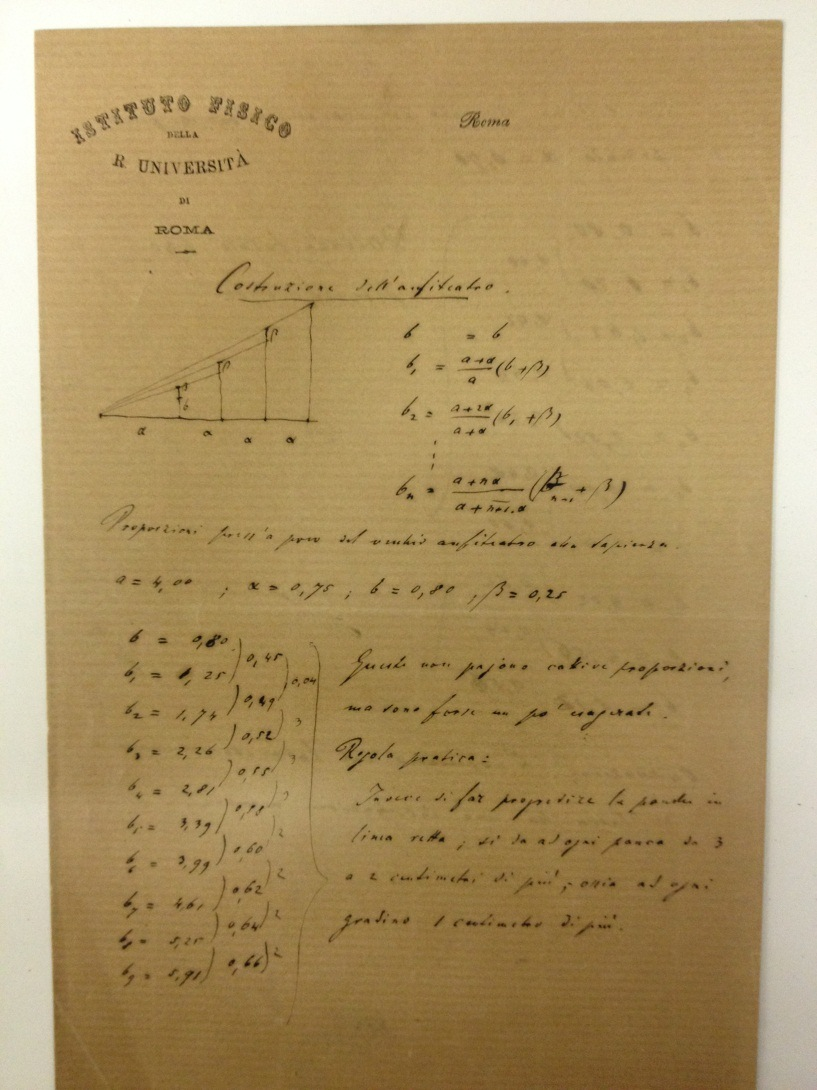 ISTITUTO FISICO
DELLA
R. UNIVERSITÀ
DI
ROMA
Roma
Costruzione dell'anfiteatro.
β
b
β
β
α α α α
b = b
b₁ = (a+α)/a (b+β)
b₂ = (a+2α)/(a+α) (b₁+β)
bₙ = (a+nα)/(a+n-1.α) (bₙ₋₁+β)
Proporzioni press'a poco del vecchio anfiteatro alla Sapienza.
a = 4,00 ; α = 0,75 ; b = 0,80 , β = 0,25
b = 0,80
0,45
b₁ = 1,25
0,04
0,49
b₂ = 1,74
3
0,52
b₃ = 2,26
3
0,55
b₄ = 2,81
3
0,58
b₅ = 3,39
2
0,60
b₆ = 3,99
2
0,62
b₇ = 4,61
2
0,64
b₈ = 5,25
2
0,66
b₉ = 5,91
Queste non pajono cattive proporzioni,
ma sono forse un po' esagerate.
Regola pratica:
Invece di far progredire le panche in
linea retta, si da ad ogni panca da 3
a 2 centimetri di più, ossia ad ogni
gradino 1 centimetro di più.